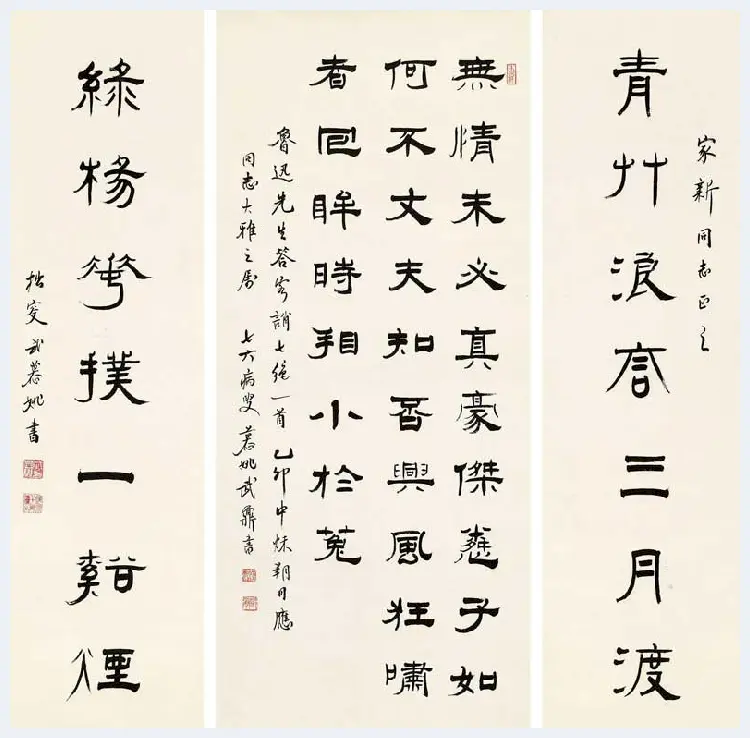 家新同志正之
青艸浪高三月渡
無情未必真豪傑憐子如
何不丈夫知否興風狂嘯
者回眸時看小於菟
魯迅先生答客誚七絕一首 乙卯中秋朔日應
同志大雅之屬 七六病叟 慕姚武鼐書
綠楊花撲一谿煙
拙叟武慕姚書